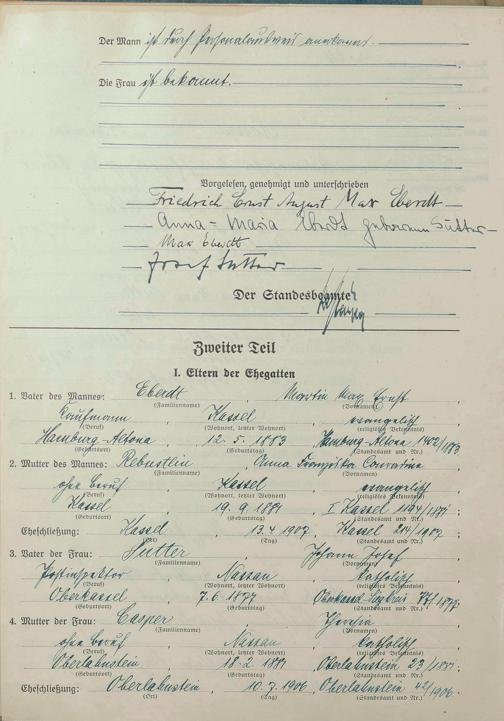 Der Mann ist durch Personalausweis anerkannt.
Die Frau ist bekannt.
Vorgelesen, genehmigt und unterschrieben
Friedrich Ernst August Max Eberdt
Anna-Maria Eberdt geborene Sutter
Max Eberdt
Josef Sutter
Der Standesbeamte
Zweiter Teil
I. Eltern der Ehegatten
1. Vater des Mannes: Eberdt, Martin Max Ernst
(Familienname) (Vornamen)
Kaufmann, Kassel, evangelisch
(Beruf) (Wohnort, letzter Wohnort) (religiöses Bekenntnis)
Hamburg-Altona, 12. 5. 1883, Hamburg-Altona 1402/1883
(Geburtsort) (Geburtstag) (Standesamt und Nr.)
2. Mutter des Mannes: Rebustlein, Anna Franziska
(Familienname) (Vornamen)
ohne Beruf, Kassel, evangelisch
(Beruf) (Wohnort, letzter Wohnort) (religiöses Bekenntnis)
Kassel, 19. 9. 1881, I Kassel 1194/1881
(Geburtsort) (Geburtstag) (Standesamt und Nr.)
Eheschließung: Kassel, 13. 4. 1907, Kassel 214/1907
(Ort) (Tag) (Standesamt und Nr.)
3. Vater der Frau: Sutter, Johann Josef
(Familienname) (Vornamen)
Postinspektor, Nassau, katholisch
(Beruf) (Wohnort, letzter Wohnort) (religiöses Bekenntnis)
Oberkassel, 7. 6. 1877, Oberkassel Siegkreis
(Geburtsort) (Geburtstag) (Standesamt und Nr.)
4. Mutter der Frau: Casper, Theresia
(Familienname) (Vornamen)
ohne Beruf, Nassau, katholisch
(Beruf) (Wohnort, letzter Wohnort) (religiöses Bekenntnis)
Oberlahnstein, 18. 2. 1881, Oberlahnstein 23/1881
(Geburtsort) (Geburtstag) (Standesamt und Nr.)
Eheschließung: Oberlahnstein, 10. 7. 1906, Oberlahnstein 42/1906
(Ort) (Tag) (Standesamt und Nr.)